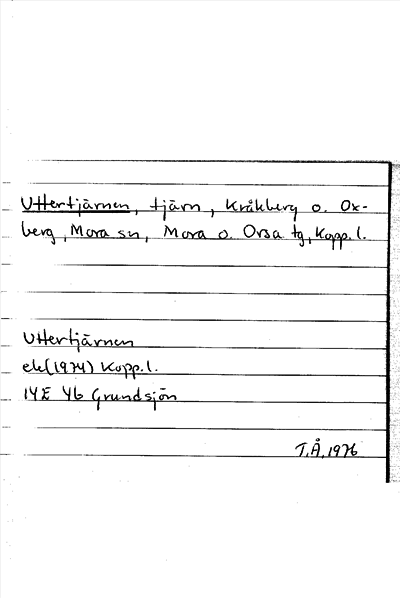 Uttertjärnen, tjärn, Kråkberg o. Ox-
berg, Mora sn, Mora o. Orsa tg, Kopp. l.
Uttertjärnen
ek (1974) Kopp. l.
14E 4b Grundsjön
T.Å. 1976